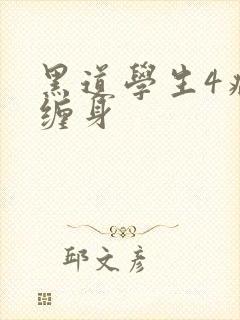 黑道學生4
缠身
邱文彦